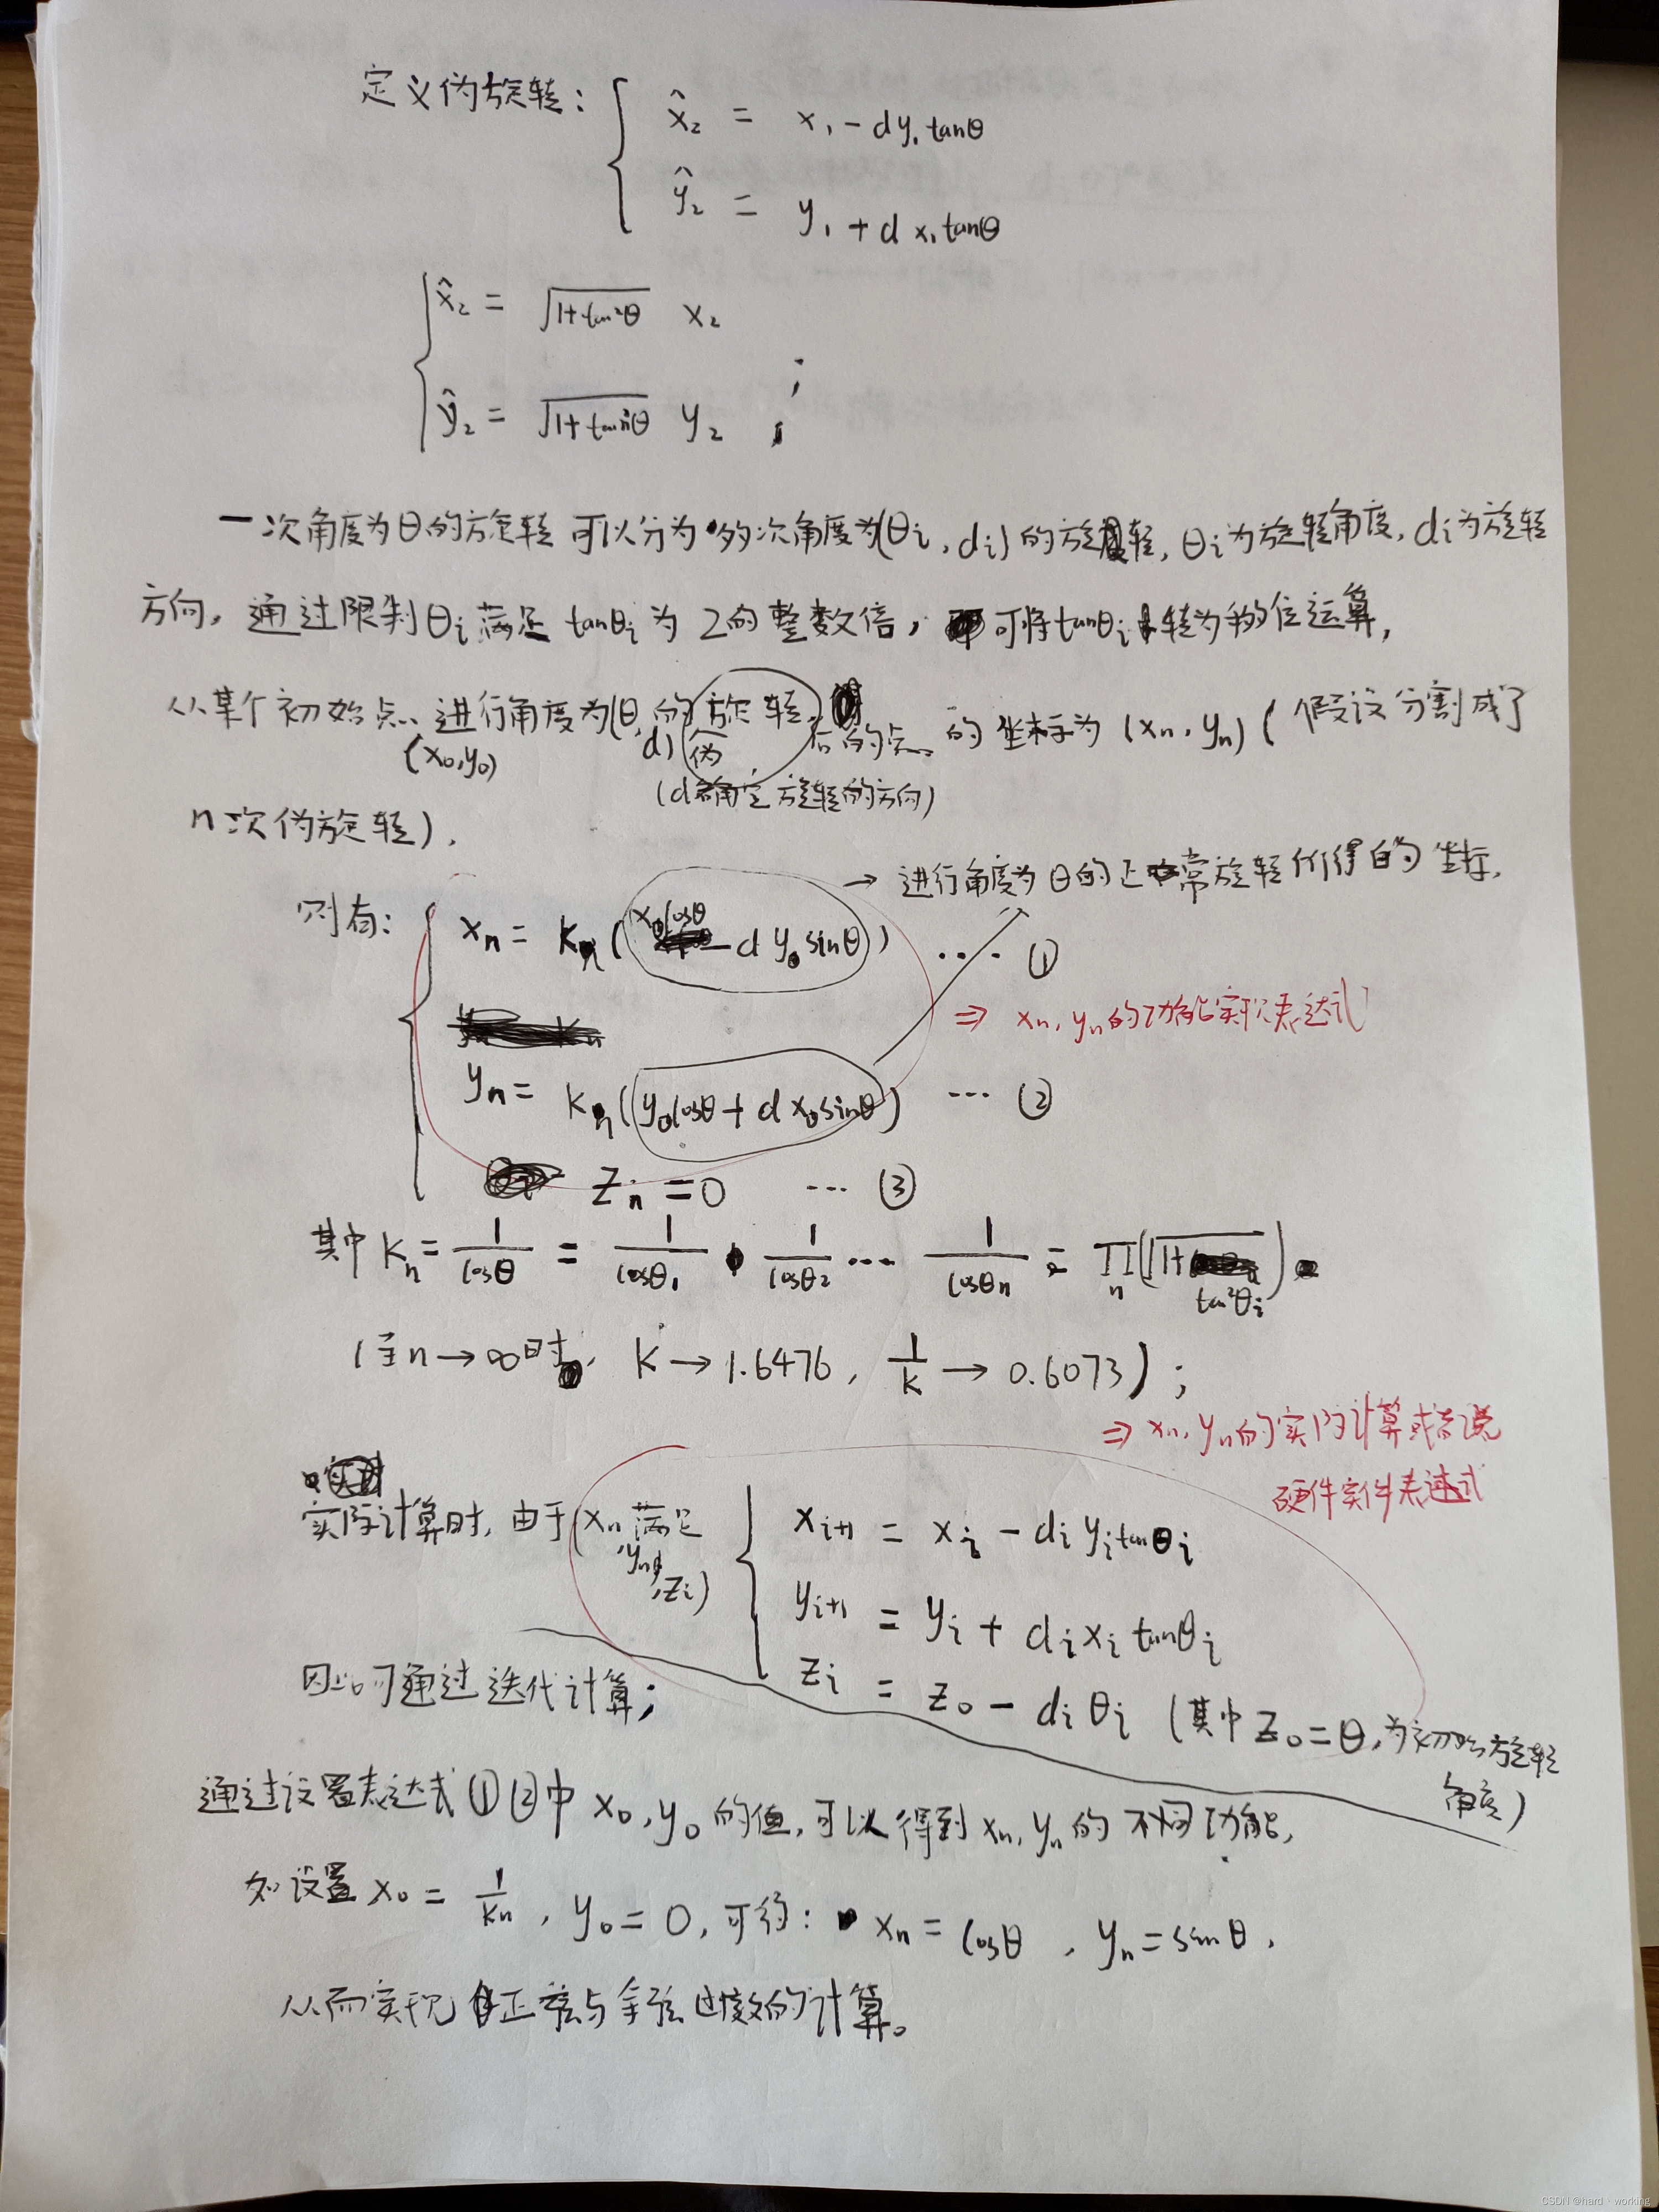 定义伪旋转: { x̂₂ = x₁ - dy₁tanθ
ŷ₂ = y₁ + d x₁tanθ
{ x̂₂ = √(1+tan²θ) x₂
ŷ₂ = √(1+tan²θ) y₂ ;
一次角度为θ的旋转 可以分为 多次角度为(θᵢ, dᵢ)的旋转, θᵢ为旋转角度, dᵢ为旋转
方向, 通过限制θᵢ满足 tanθᵢ为 2的整数倍, 可将tanθᵢ转为移位运算,
从某个初始点(x₀,y₀)进行角度为(θ,d)的伪旋转后的点的坐标为 (xₙ, yₙ) ( 假设分割成了
(d确定旋转的方向)
n次伪旋转).
→ 进行角度为θ的正常旋转所得的坐标.
则有: { xₙ = Kₙ(x₀cosθ - d y₀ sinθ) ... ①
⇒ xₙ, yₙ的功能实现表达式
yₙ = Kₙ(y₀cosθ + d x₀sinθ) ... ②
zₙ = 0 ... ③
其中 Kₙ = 1/cosθ = 1/cosθ₁ · 1/cosθ₂ ... 1/cosθₙ = ∏ₙ(√(1+tan²θᵢ))
(当n→∞时, K→1.6476, 1/K → 0.6073) ;
⇒ xₙ, yₙ的实际计算或者说
硬件实件表达式
实际计算时, 由于(xₙ,yₙ,zᵢ)满足 { xᵢ₊₁ = xᵢ - dᵢ yᵢtanθᵢ
yᵢ₊₁ = yᵢ + dᵢxᵢ tanθᵢ
zᵢ = z₀ - dᵢθᵢ (其中z₀=θ,为初始旋转角度)
因此可通过迭代计算;
通过设置表达式①②中 x₀, y₀的值, 可以得到 xₙ, yₙ的不同功能,
如设置 x₀ = 1/Kₙ , y₀ = 0, 可得: xₙ = cosθ , yₙ = sinθ .
从而实现 正弦与余弦函数的计算。
CSDN @hard、working